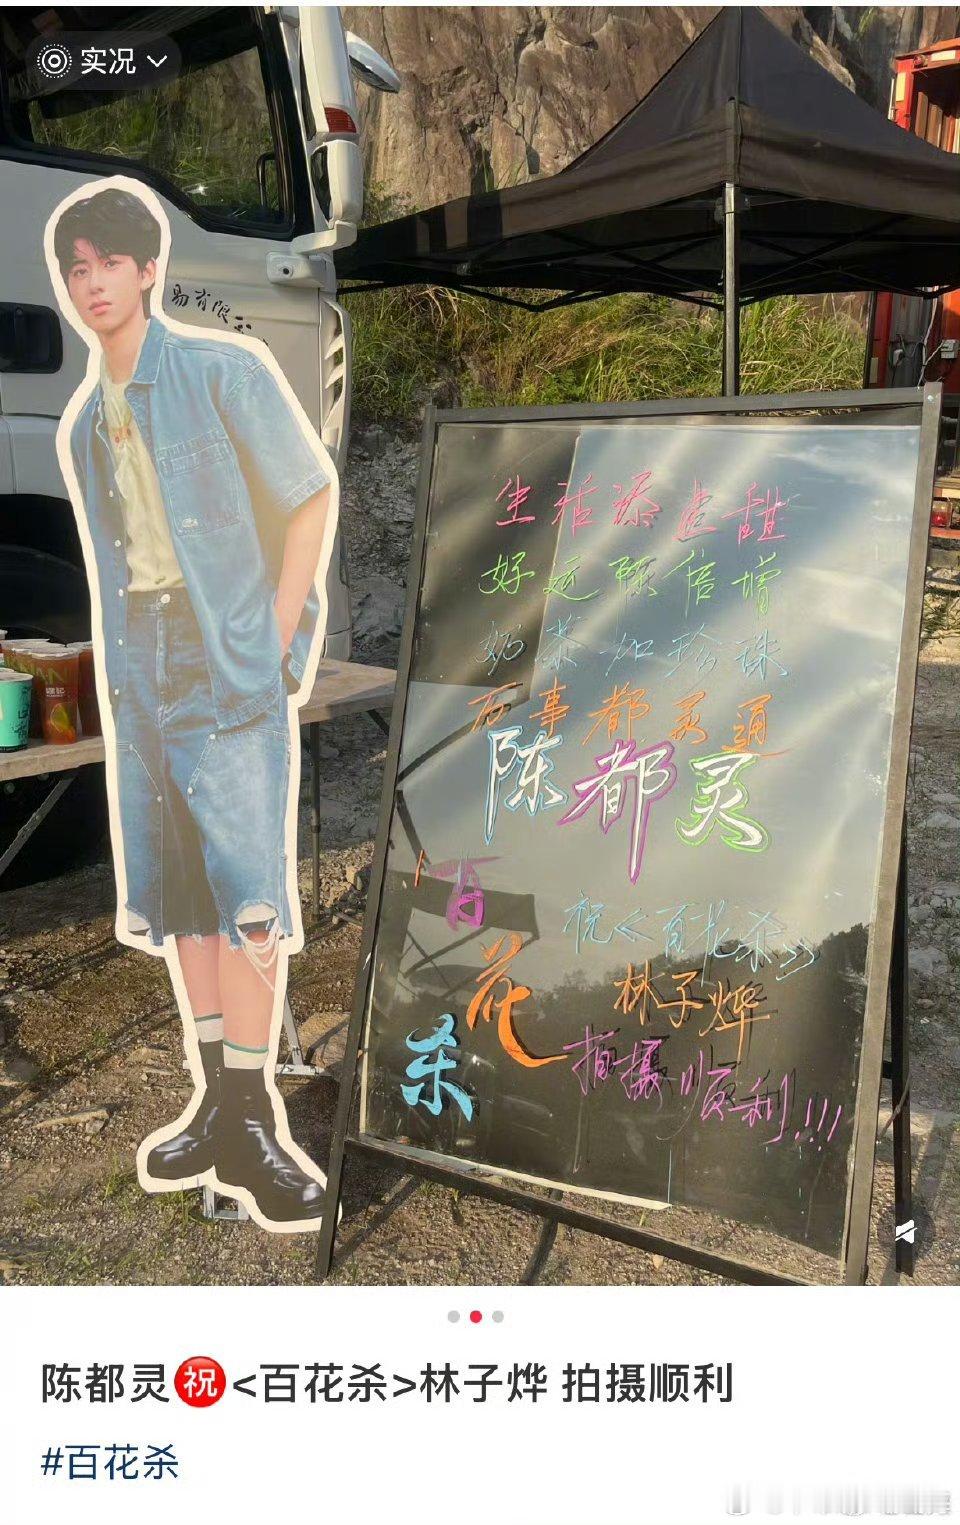 实况
易有限公
生活添点甜
好运陈倍增
奶茶加珍珠
万事都灵通
陈都灵
百花杀
祝《百花杀》
林子烨
拍摄顺利!!!
陈都灵㊗️<百花杀>林子烨 拍摄顺利
#百花杀